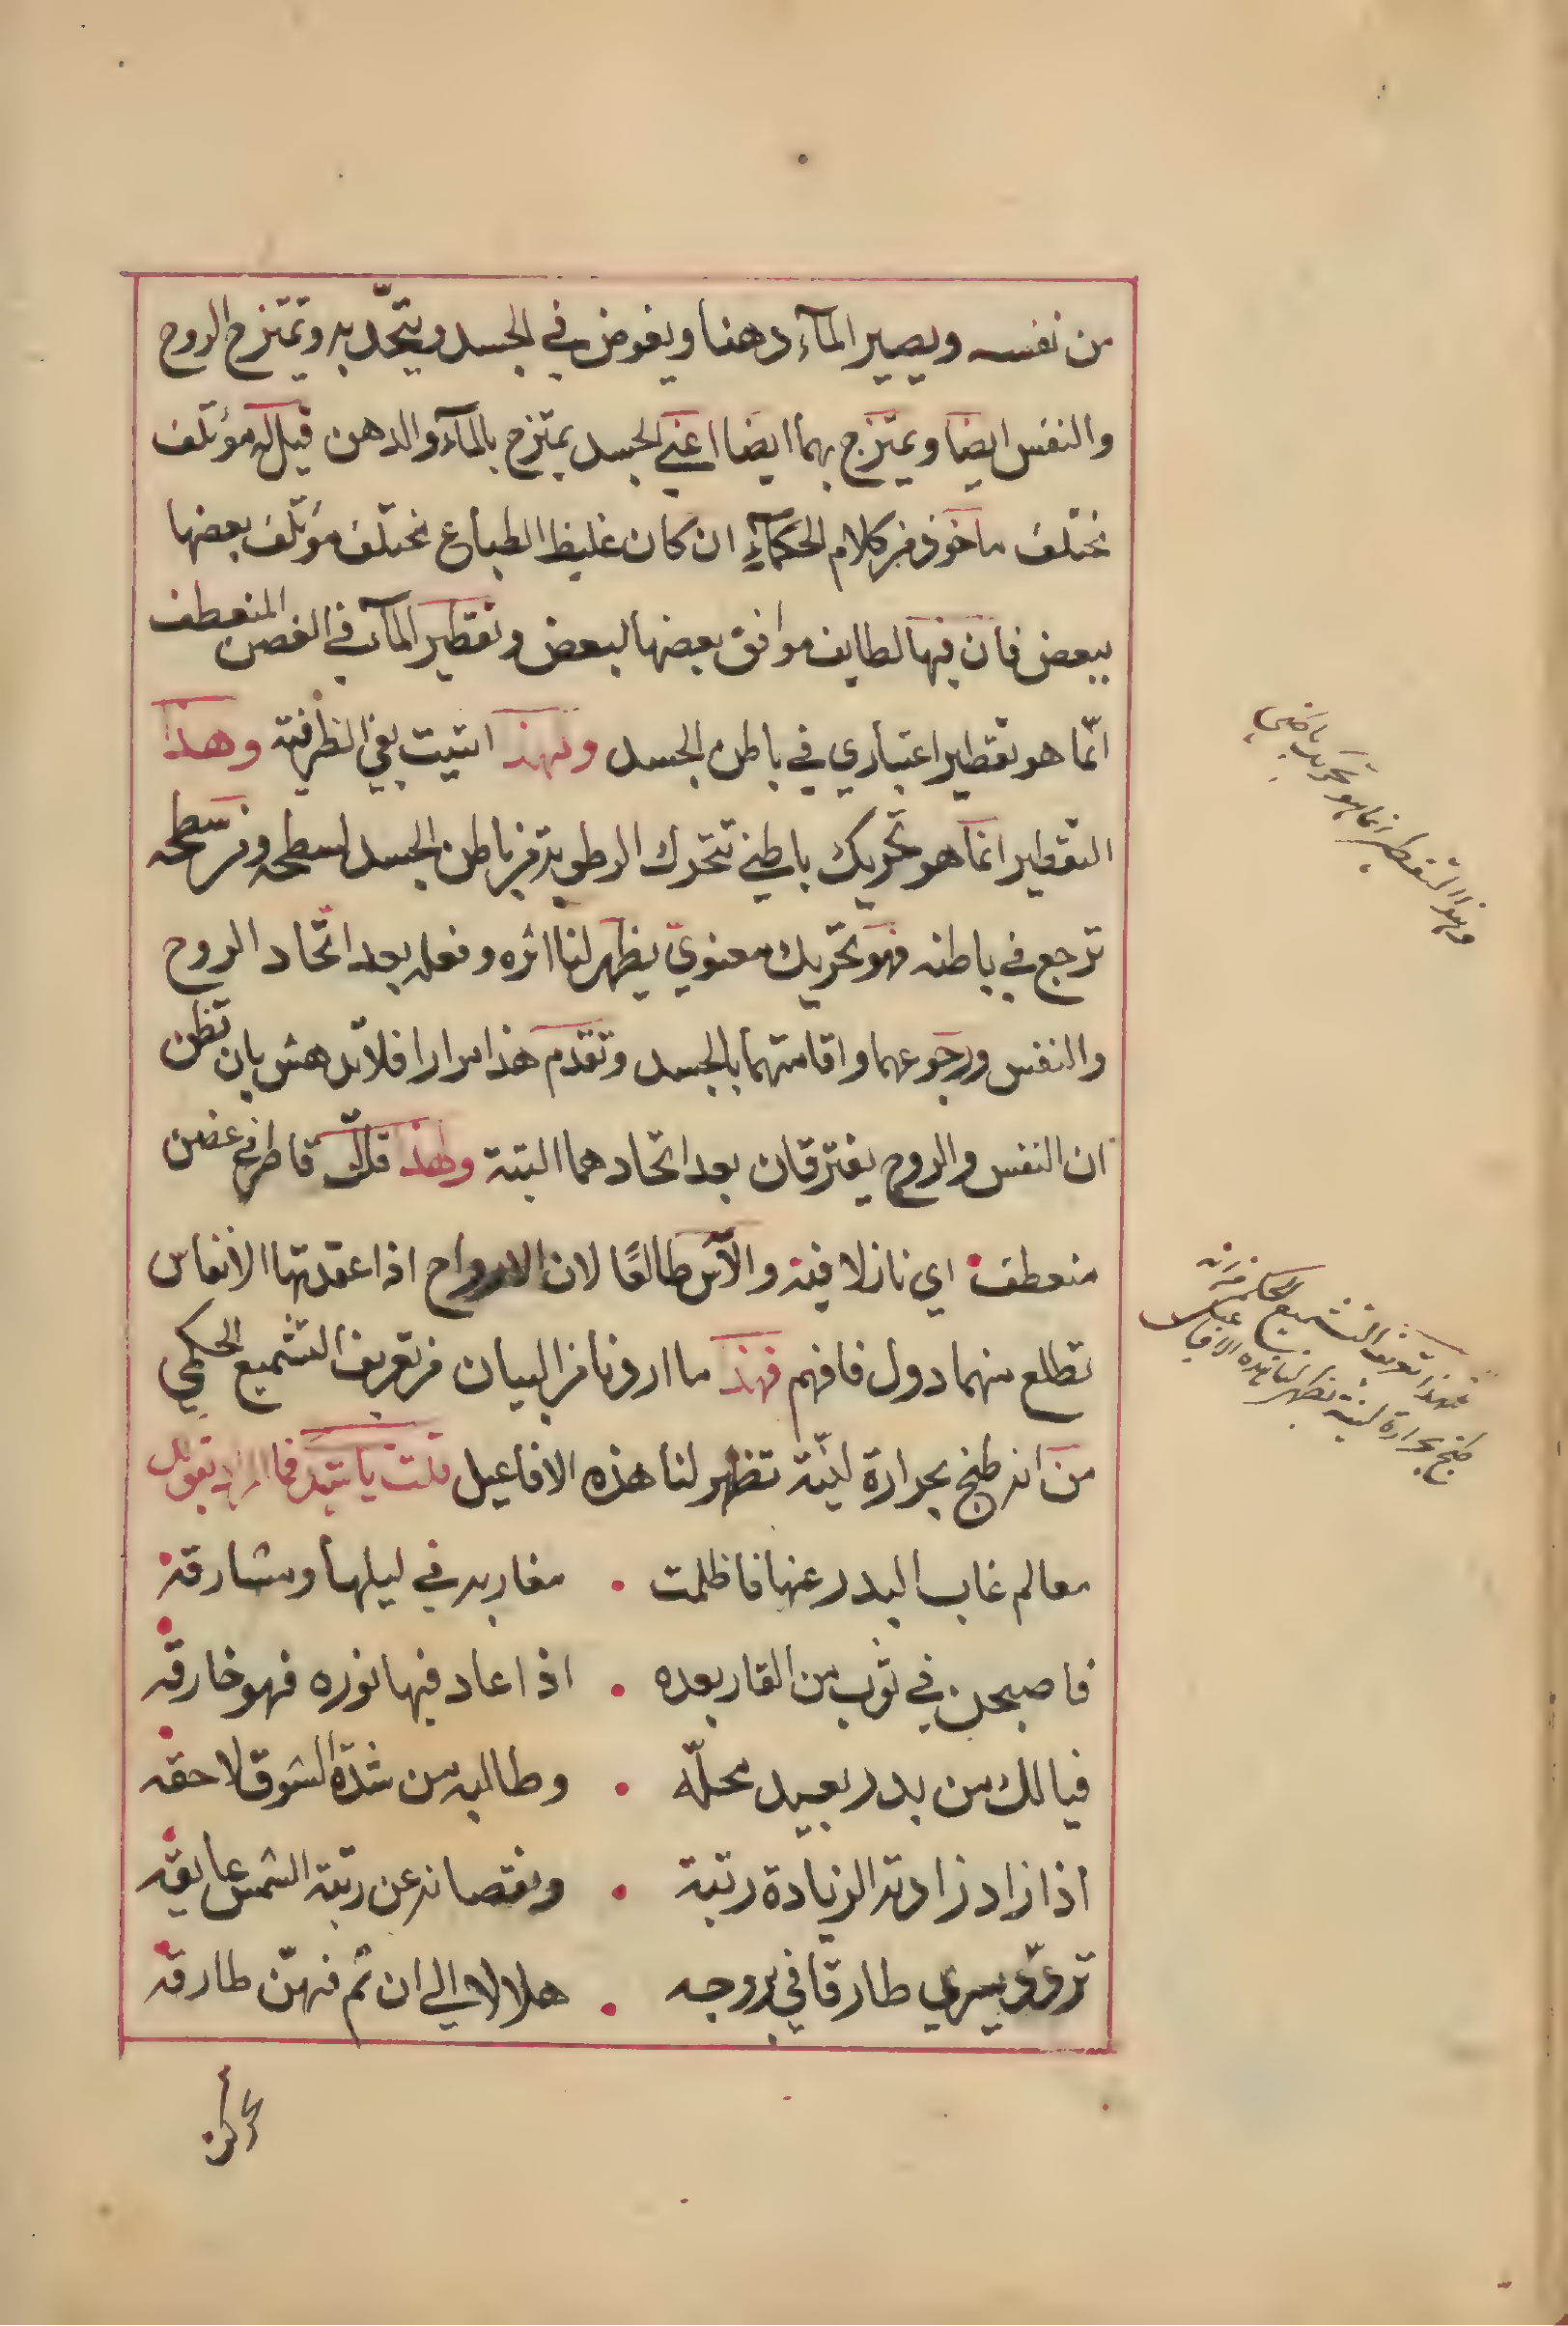 من نفسه ويصير المآء دهنا ويغوض في الجسد ويتحّد به وتمتزج الروح
والنفس ايضا ويمتزج بهما ايضا اعني الجسد يمتزج بالمآء والدهن قيل له مؤتلف
مختلف ماخوذ من كلام الحكمآء ان كان غليظ الطباع مختلف مؤتلف بعضها
ببعض فان فيها لطايف موافق بعضها لبعض وتقطير المآء في الغصن المنعطف
انّما هو تقطير اعتباري في باطن الجسد ولهذا اتيت بفي الظرفية وهذا
التقطير انما هو تحريك باطني تتحرك الرطوبة من باطن الجسد لسطحه ومن سطحه
ترجع في باطنه فهو تحريك معنوي يظهر لنا اثره وفعله بعد اتّحاد الروح
والنفس ورجوعهما واقامتهما بالجسد وتقدم هذا مرارا فلا تدهش بان تظن
ان النفس والروح يفترقان بعد اتحادهما البتة ولهذا قلت قاطر في غصن
منعطف اي نازلا فيه والآس طالعًا لان الارواح اذا عقدتها الانفاس
تطلع منهما دول فافهم فهذا ما اردنا من البيان من تعريف التشميع الحكمي
من انه طبخ بحرارة لينّة تظهر لنا هذه الافاعيل قلت يا سيد فما تقول
معالم غاب البدر عنها فاظلمت . مغاربه في ليلها ومشارقه
فاصبحن في ثوب من القار بعده . اذا عاد فيها نوره فهو خارقه
فيا لك من بدر بعيد محلّه . وطالبه من شدّة الشوق لاحقه
اذا زاد زادته الزيادة رتبة . ونقصانه عن رتبة الشمس عايقه
يسري طارقا في بروجه . هلالا الي ان تم فهنّ طارقه
وهذا التقطير انما هو تحريك باطني
فهذا تعريف التشميع الحكمي من انه
طبخ بحرارة لينة تظهر لنا هذه الافاعيل